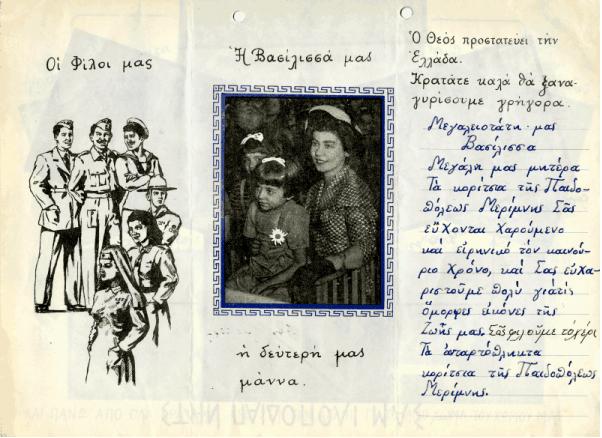 Οἱ Φίλοι μας
Ἡ Βασίλισσά μας
ἡ δεύτερη μας
μάννα.
Ὁ Θεός προστατεύει τήν
Ἑλλάδα.
Κρατάτε καλά θά ξανα-
γυρίσουμε γρήγορα.
Μεγαλειοτάτη μας
Βασίλισσα
Μεγάλη μας μητέρα
Τά κορίτσια τῆς Παιδο-
πόλεως Μερίμνης Σᾶς
εὔχονται Χαρούμενο
καί εἰρηνικό τόν καινού-
ριο Χρόνο, καί Σας εὐχα-
ριστοῦμε πολύ γιατίς
ὄμορφες εἰκόνες τῆς
Ζωῆς μας. Σᾶς φιλοῦμε τό χέρι
Τά ἀνταρτόπληκτα
κορίτσια τῆς Παιδοπόλεως
Μερίμνης.
ΣΤΗΝ ΠΑΙΔΟΠΟΛΙ ΜΑΣ